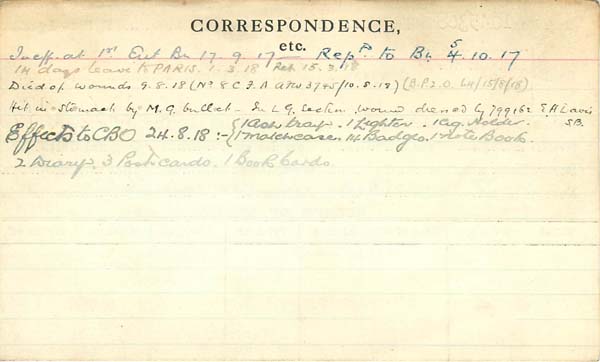 CORRESPONDENCE,
etc.
at 1st Ent Bn 17.9.17 — Repd to Bn 4.10.17
14 days leave to PARIS. 1.3.18 Ret. 15.3.18
Died of wounds 9.8.18 (No 8 C.F.A. 3785/10.8.18) (B.P.2.O. 64/15/8/18)
Hit in stomach by M.G. bullet. In L.G. Section wound dressed by 799162 E A Davis
S.B.
Effects to CBO 24.8.18 :- { 1 Ash tray. 1 Lighter. 1 Cig. Holder.
1 matchcase. 14 Badges. 1 note Book.
2 Diary. 3 Post cards. 1 Book Cards.